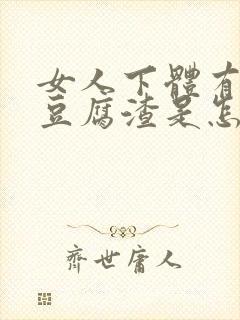 女人下體有
豆腐渣是怎
齊世庸人